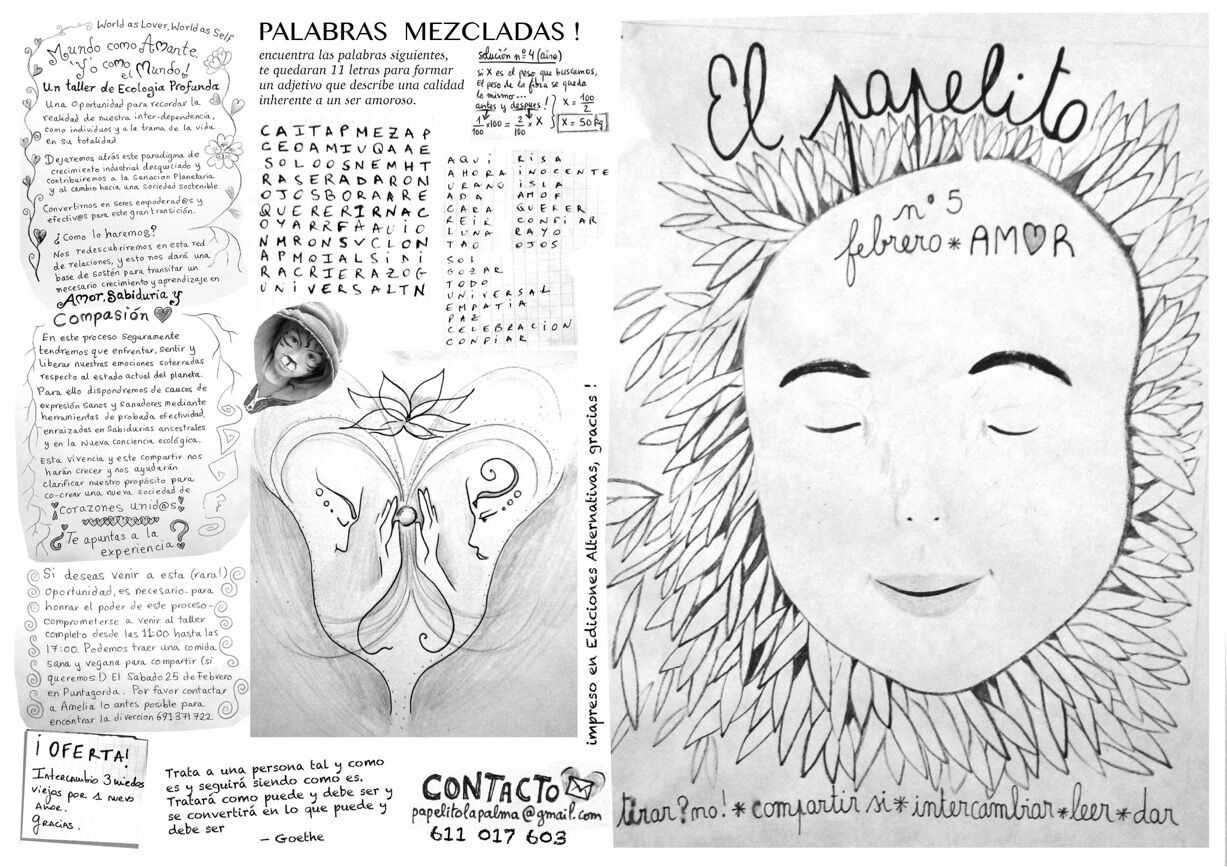 World as Lover, World as Self
Mundo como Amante
Y Yo como
el Mundo!
Un taller de Ecología Profunda
Una Oportunidad para recordar la
realidad de nuestra inter-dependencia,
como individuos y a la trama de la vida
en su totalidad
Dejaremos atrás este paradigma de
crecimiento industrial desquiciado y
contribuiremos a la Sanacion Planetaria
y al cambio hacia una sociedad sostenible.
Convertirnos en seres empoderad@s y
efectiv@s para este gran transición.
¿Como lo haremos?
Nos redescubriremos en esta red
de relaciones, y esto nos dará una
base de sostén para transitar un
necesario crecimiento y aprendizaje en
Amor, Sabiduria y
Compasión
En este proceso Seguramente
tendremos que enfrentar, sentir y
liberar nuestras emociones soterradas
respecto al estado actual del planeta.
Para ello dispondremos de cauces de
expresión Sanos y Sanadores mediante
herramientas de probada efectividad,
enraizadas en Sabidurias ancestrales
y en la Nueva conciencia ecológica.
Esta vivencia y este compartir nos
harán crecer y nos ayudarán
clarificar nuestro propósito para
co-crear una nueva sociedad de
¡corazones unid@s!
¿Te apuntas a la
experiencia?
Si deseas venir a esta (rara!)
Oportunidad, es necesario-para
honrar el poder de este proceso-
comprometerse a venir al taller
completo desde las 11:00 hasta las
17:00. Podemos traer una comida
sana y vegana para compartir (si
queremos!) El Sabado 25 de Febrero
en Puntagorda. Por favor contactar
a Amelia lo antes posible para
encontrar la direccion 691371722
¡OFERTA!
Intercambio 3 miedos
viejos por 1 nuevo
amor.
gracias.
PALABRAS MEZCLADAS !
encuentra las palabras siguientes,
te quedaran 11 letras para formar
un adjetivo que describe una calidad
inherente a un ser amoroso.
solución nº 4 (aire)
si X es el peso que buscamos,
El peso de la fibra se queda
lo mismo...
antes y despues !
1/100 x100 = 2/100 x X
X = 100/2
X = 50 kg
CAITAPMEZAP
CEOAMIUQAAE
SOLOOSNEMHT
RASERADARON
OJOSBORAARE
QUERERIRNAC
OYARRFAAUIO
NMRONSVCLON
APMOIALSIDI
RACRIERAZOG
UNIVERSALTN
AQUI RISA
AHORA INOCENTE
URANO ISLA
ADA AMOR
CARA QUERER
REIR CONFIAR
LUNA RAYO
TAO OJOS
SOL
GOZAR
TODO
UNIVERSAL
EMPATIA
PAZ
CELEBRACION
CONFIAR
impreso en Ediciones Alternativas, gracias !
Trata a una persona tal y como
es y seguirá siendo como es.
Tratará como puede y debe ser y
se convertirá en lo que puede y
debe ser
— Goethe
CONTACTO
papelitolapalma@gmail.com
611 017 603
El papelito
nº 5
febrero * AMOR
tirar? no! * compartir si * intercambiar * leer * dar